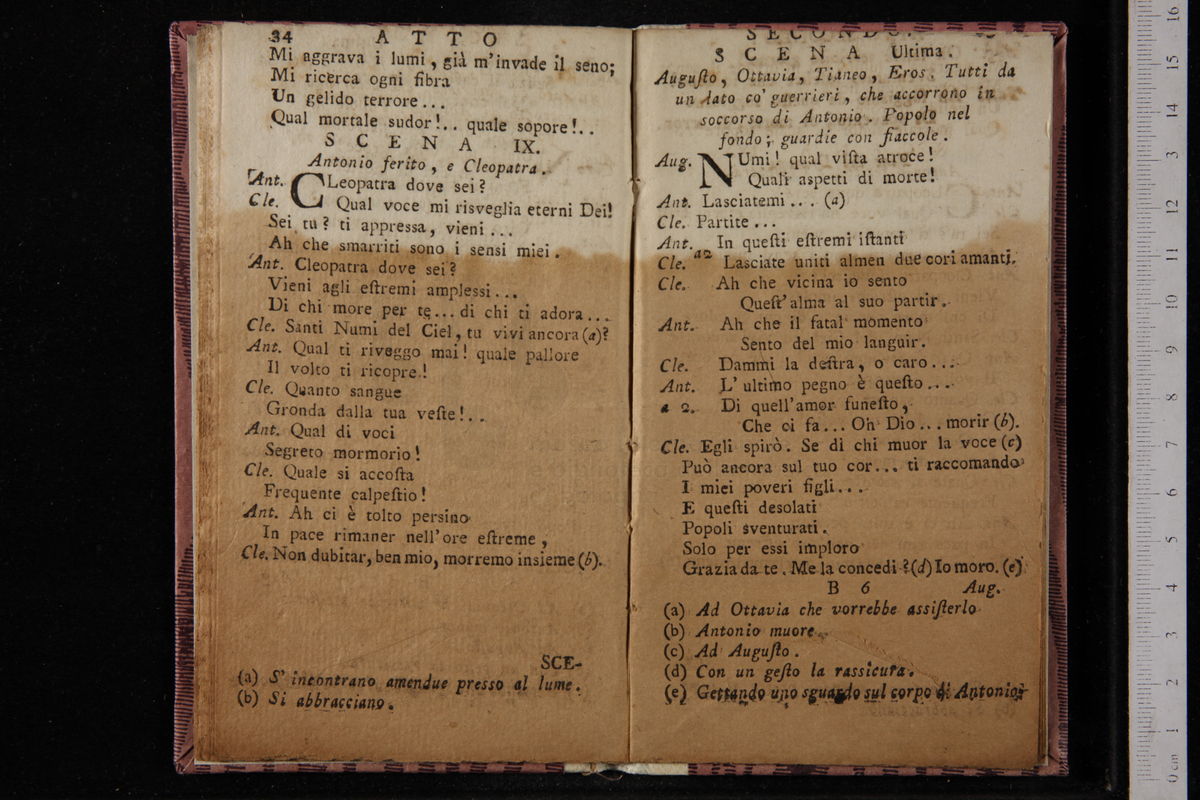 34 ATTO
Mi aggrava i lumi, già m'invade il seno;
Mi ricerca ogni fibra
Un gelido terrore...
Qual mortale sudor!.. quale sopore!..
SCENA IX.
Antonio ferito, e Cleopatra.
Ant. CLeopatra dove sei?
Cle. Qual voce mi risveglia eterni Dei!
Sei tu? ti appressa, vieni...
Ah che smarriti sono i sensi miei.
Ant. Cleopatra dove sei?
Vieni agli eſtremi amplessi...
Di chi more per te... di chi ti adora...
Cle. Santi Numi del Ciel, tu vivi ancora (a)?
Ant. Qual ti riveggo mai! quale pallore
Il volto ti ricopre!
Cle. Quanto sangue
Gronda dalla tua veſte!..
Ant. Qual di voci
Segreto mormorio!
Cle. Quale si accoſta
Frequente calpeſtio!
Ant. Ah ci è tolto persino
In pace rimaner nell'ore eſtreme,
Cle. Non dubitar, ben mio, morremo insieme (b).
SCE-
(a) S'incontrano amendue presso al lume.
(b) Si abbracciano.
SECONDO.
SCENA Ultima.
Auguſto, Ottavia, Tianeo, Eros. Tutti da
un lato co' guerrieri, che accorrono in
soccorso di Antonio. Popolo nel
fondo; guardie con fiaccole.
Aug. NUmi! qual viſta atroce!
Quali aspetti di morte!
Ant. Lasciatemi... (a)
Cle. Partite...
Ant. In queſti eſtremi iſtanti
Cle. a2 Lasciate uniti almen due cori amanti.
Cle. Ah che vicina io sento
Queſt'alma al suo partir.
Ant. Ah che il fatal momento
Sento del mio languir.
Cle. Dammi la deſtra, o caro...
Ant. L'ultimo pegno è queſto...
a 2. Di quell'amor funeſto,
Che ci fa... Oh Dio... morir (b).
Cle. Egli spirò. Se di chi muor la voce (c)
Può ancora sul tuo cor... ti raccomando
I miei poveri figli...
E queſti desolati
Popoli sventurati.
Solo per essi imploro
Grazia da te. Me la concedi? (d) Io moro. (e)
B 6 Aug.
(a) Ad Ottavia che vorrebbe assiſterlo
(b) Antonio muore.
(c) Ad Auguſto.
(d) Con un geſto la rassicura.
(e) Gettando uno sguardo sul corpo di Antonio.
16
15
14
13
12
11
10
9
8
7
6
5
4
3
2
1
0 cm